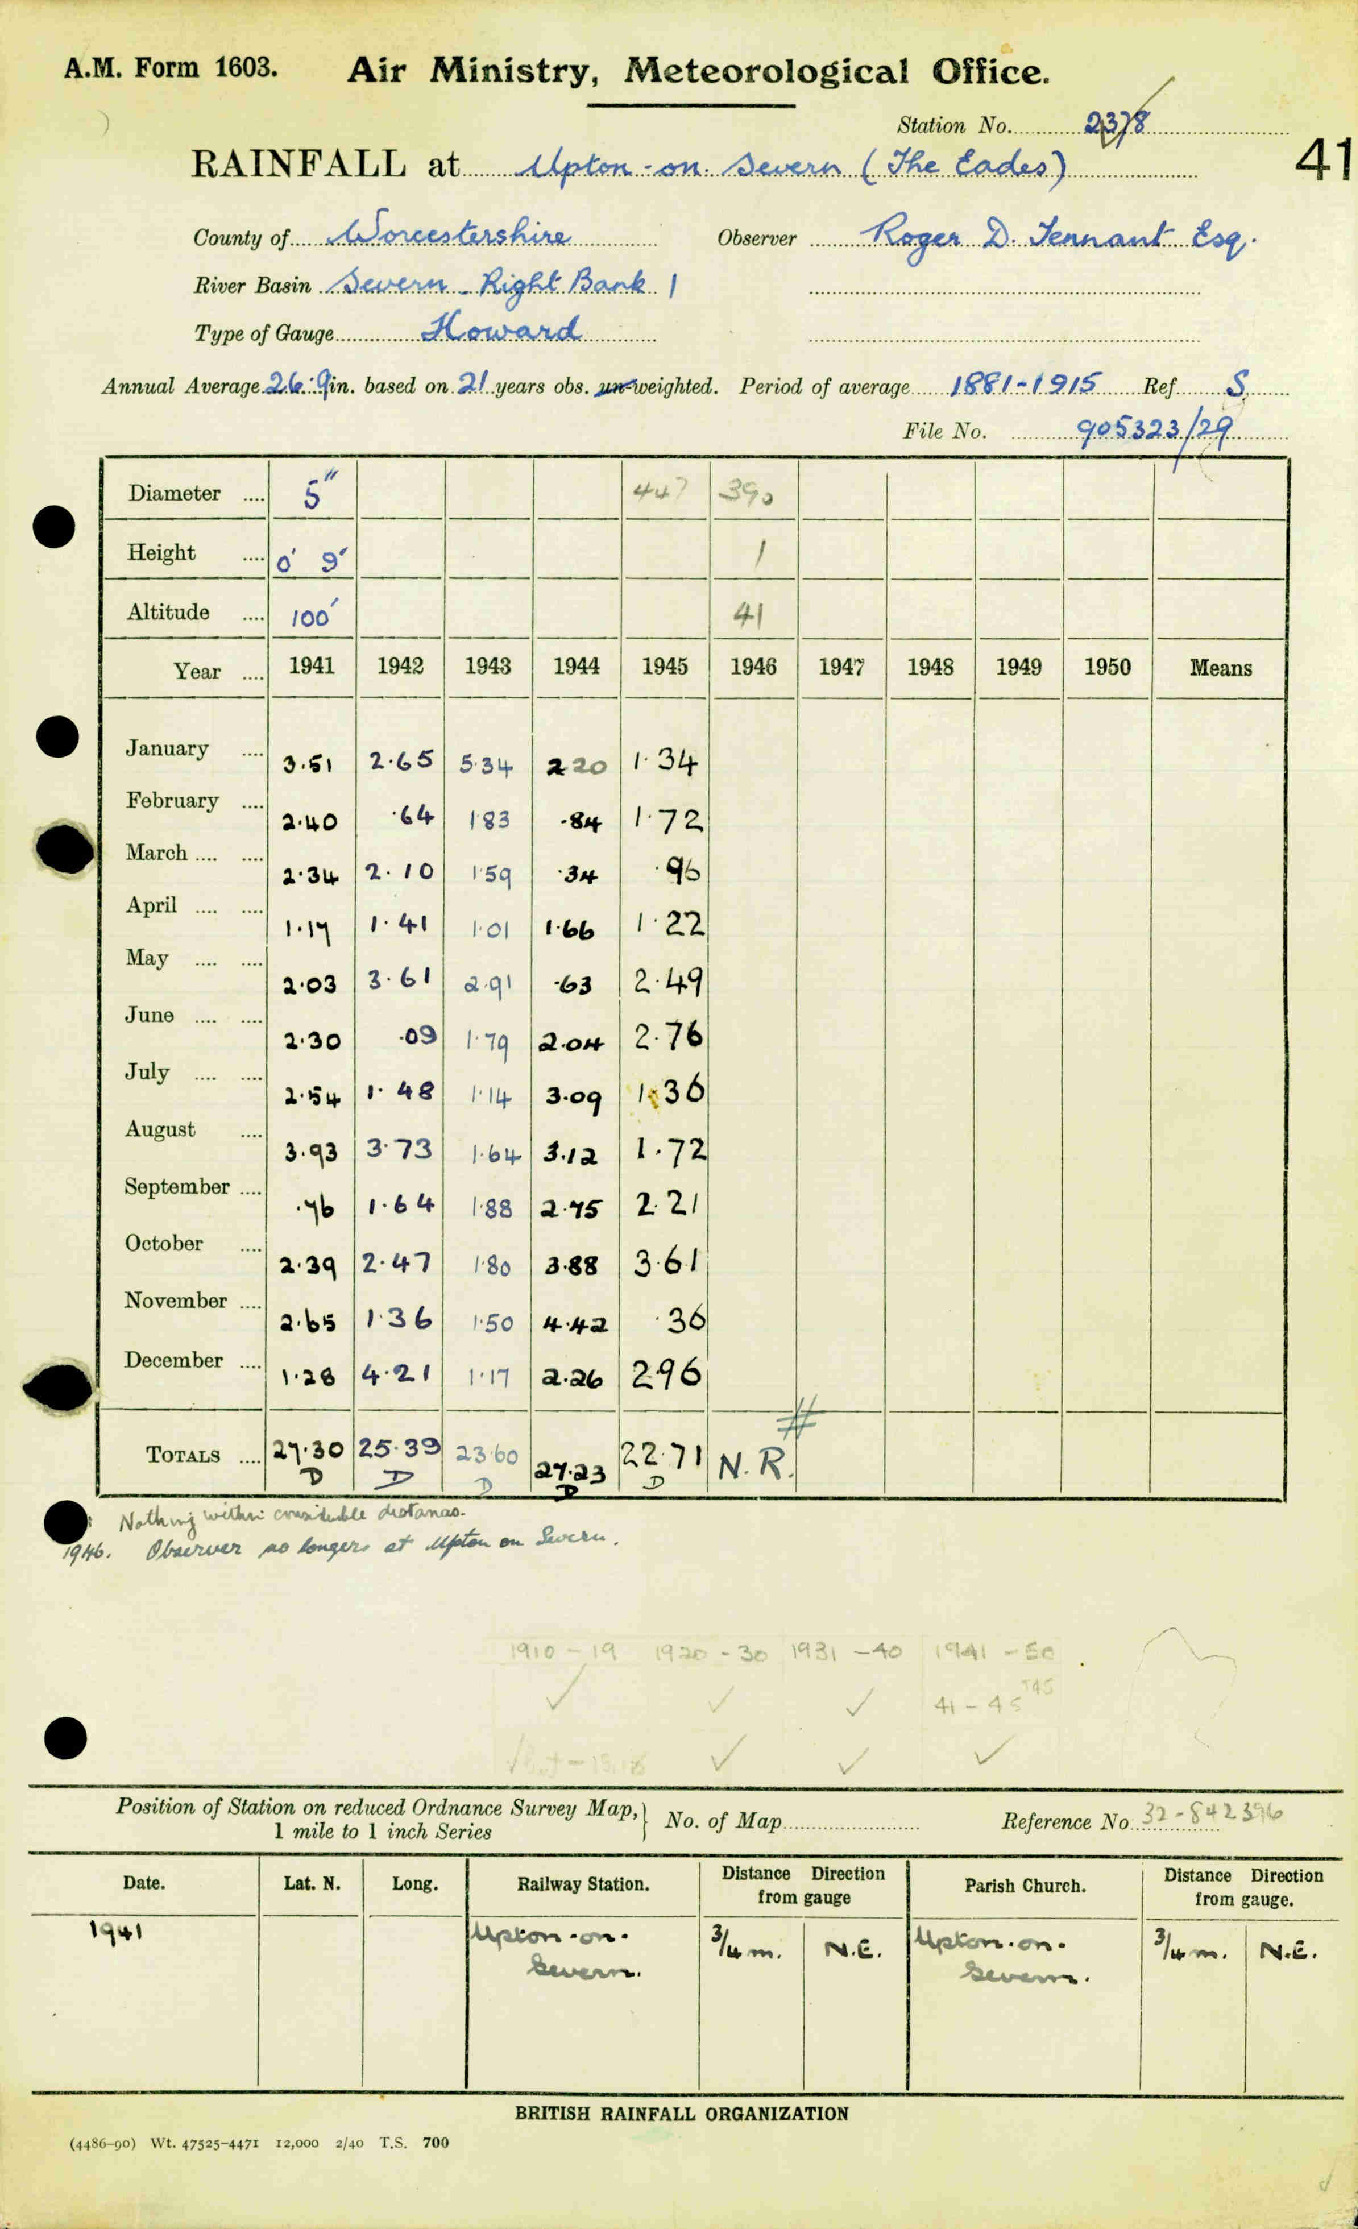 A.M. Form 1603. Air Ministry, Meteorological Office.
Station No. 2378
41
RAINFALL at Upton-on-Severn (The Eades)
County of Worcestershire Observer Roger D. Tennant Esq.
River Basin Severn - Right Bank 1
Type of Gauge Howard
Annual Average 26.9 in. based on 21 years obs. un-weighted. Period of average 1881-1915 Ref S.
File No. 905323/29
Diameter .... 5" 447 390
Height .... 0' 9" 1
Altitude .... 100' 41
Year .... 1941 1942 1943 1944 1945 1946 1947 1948 1949 1950 Means
January .... 3.51 2.65 5.34 2.20 1.34
February .... 2.40 .64 1.83 .84 1.72
March .... .... 2.34 2.10 1.59 .34 .96
April .... .... 1.17 1.41 1.01 1.66 1.22
May .... .... 2.03 3.61 2.91 .63 2.49
June .... .... 2.30 .09 1.79 2.04 2.76
July .... .... 2.54 1.48 1.14 3.09 1.36
August .... 3.93 3.73 1.64 3.12 1.72
September .... .76 1.64 1.88 2.75 2.21
October .... 2.39 2.47 1.80 3.88 3.61
November .... 2.65 1.36 1.50 4.42 .36
December .... 1.28 4.21 1.17 2.26 2.96
TOTALS .... 27.30 25.39 23.60 27.23 22.71 N.R. #
D D D D D
Nothing within considerable distance.
1946. Observer no longer at Upton on Severn.
1910 - 19 1920 - 30 1931 - 40 1941 - 50
✓ ✓ ✓ 41 - 45
✓ ✓ ✓ ✓
Position of Station on reduced Ordnance Survey Map, 1 mile to 1 inch Series } No. of Map Reference No 32-842396
Date. Lat. N. Long. Railway Station. Distance Direction from gauge Parish Church. Distance Direction from gauge.
1941 Upton-on-Severn. 3/4 m. N.E. Upton-on-Severn. 3/4 m. N.E.
BRITISH RAINFALL ORGANIZATION
(4486-90) Wt. 47525-4471 12,000 2/40 T.S. 700